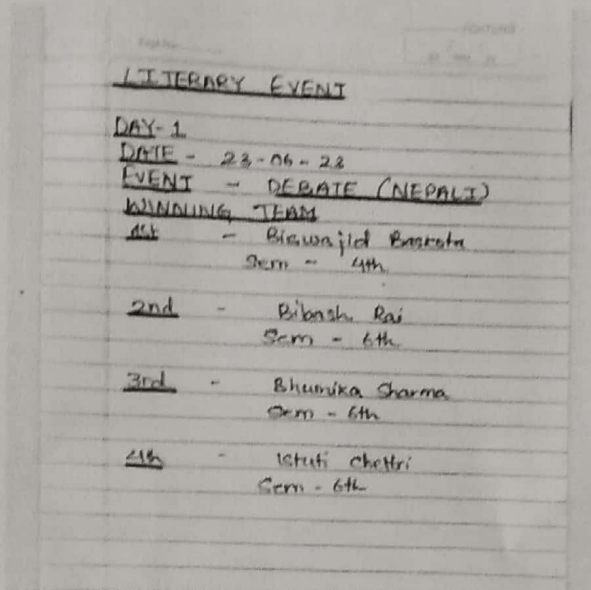 LITERARY EVENT
DAY-1
DATE - 23-06-23
EVENT - DEBATE (NEPALI)
WINNING TEAM
1st - Biswajid
Sem - 4th
2nd - Bibash Rai
Sem - 6th
3rd - Bhumika Sharma
Sem - 6th
4th - Istuti Chettri
Sem - 6th